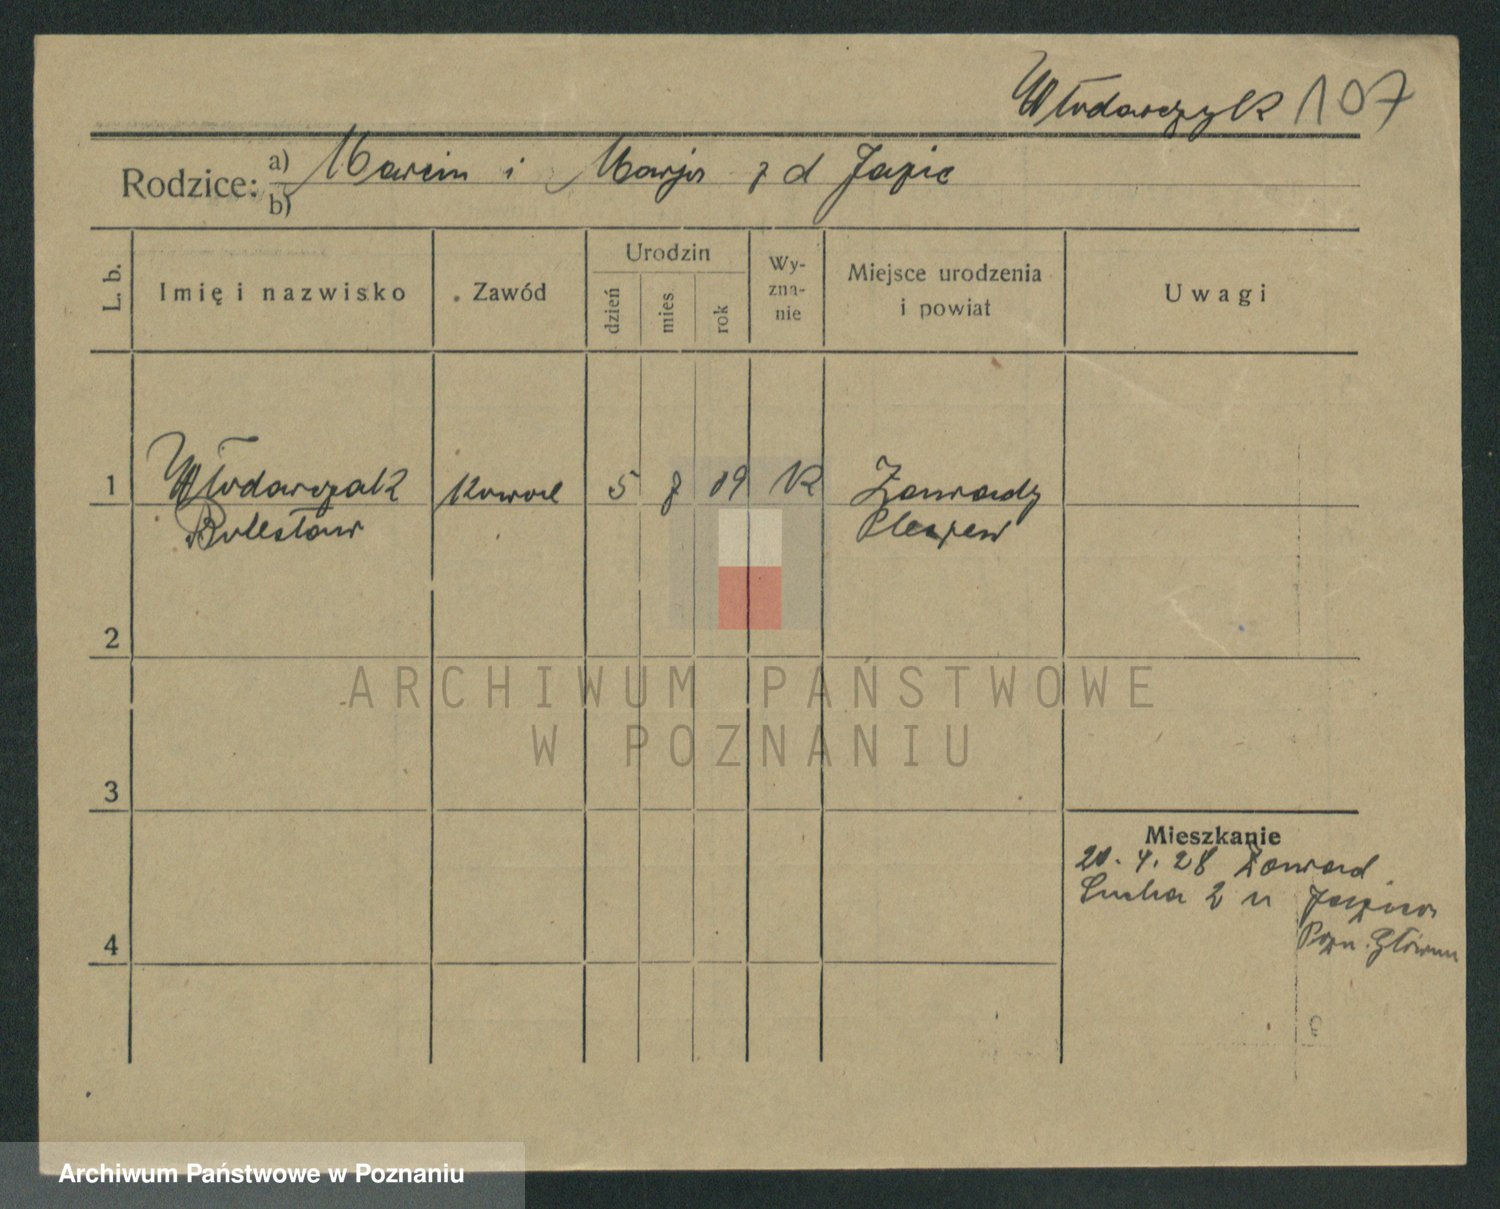 Włodarczyk 107
Rodzice: a) Marcin i Marja z d Japic
b)
L. b. Imię i nazwisko Zawód Urodzin dzień mies rok Wyznanie Miejsce urodzenia i powiat Uwagi
1 Włodarczak kowal 5 8 09 K Zawady
Bolesław Pleszew
2
ARCHIWUM PAŃSTWOWE
W POZNANIU
3
Mieszkanie
20. 4. 28 Zawad
Sucha 2 u
4 Pozn. Główna
Archiwum Państwowe w Poznaniu